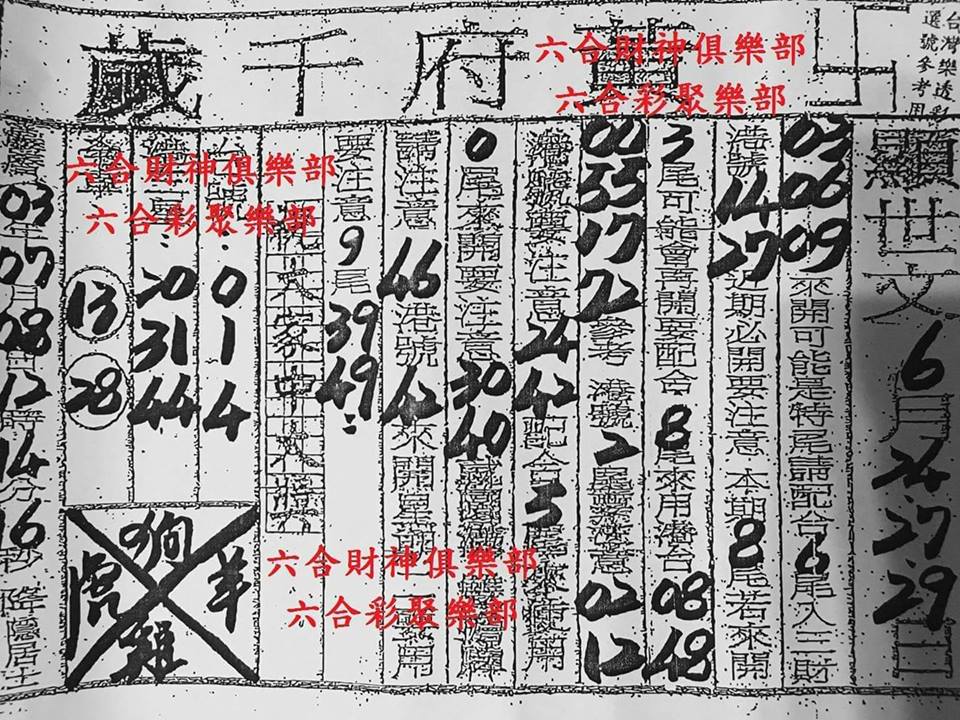 台灣樂透彩
選號參考用
府千歲
顯世文 6月24.27.29日
03 06 09 來開可能是特尾請配合 6尾入三財
港號 14 27 近期必開要注意 本期8尾若來開
3尾可能會再開要配合 8尾來用港台 08 48
00 55 17 72 參考 港號 2尾要注意 02 12
要注意 24 42 配合 5
0尾來開要注意 30 40
請注意 46 港號 42 來開星期 用
要注意 9尾 39 49:
祝大家中大獎
: 0 1 4
: 20 31 44
13 28
狗
虎 羊
雞
03年07月08日12時14分16秒 降隱居士
六合財神俱樂部
六合彩聚樂部
六合財神俱樂部
六合彩聚樂部
六合財神俱樂部
六合彩聚樂部